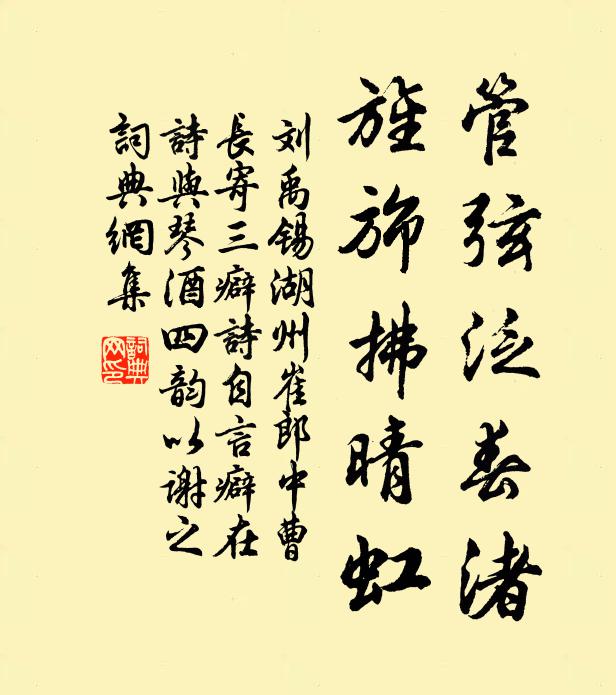 管弦泛春渚
旌旆拂晴虹
刘禹锡湖州崔郎中曹
長寄三癖詩自言癖在
詩與琴酒四韵以谢之
詞典網集
詞典
网印